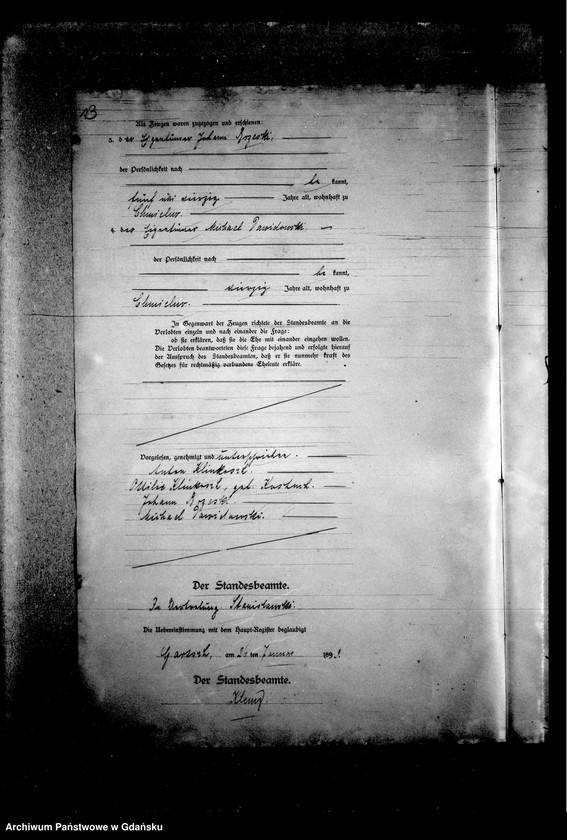 13
Als Zeugen waren zugezogen und erschienen:
3. der Eigentümer Johann
der Persönlichkeit nach
be kannt,
fünf und vierzig Jahre alt, wohnhaft zu
4. der Eigentümer Michael Dawidowski.
der Persönlichkeit nach
be kannt,
vierzig Jahre alt, wohnhaft zu
In Gegenwart der Zeugen richtete der Standesbeamte an die
Verlobten einzeln und nach einander die Frage:
ob sie erklären, daß sie die Ehe mit einander eingehen wollen.
Die Verlobten beantworteten diese Frage bejahend und erfolgte hierauf
der Ausspruch des Standesbeamten, daß er sie nunmehr kraft des
Gesetzes für rechtmäßig verbundene Eheleute erkläre.
Vorgelesen, genehmigt und unterschrieben.
Anton Klinkosch.
Ottilie Klinkosch, geb.
Johann
Michael Dawidowski.
Der Standesbeamte.
In Vertretung Stanislawski.
Die Uebereinstimmung mit dem Haupt-Register beglaubigt
am ten Januar 189
Der Standesbeamte.
Archiwum Państwowe w Gdańsku